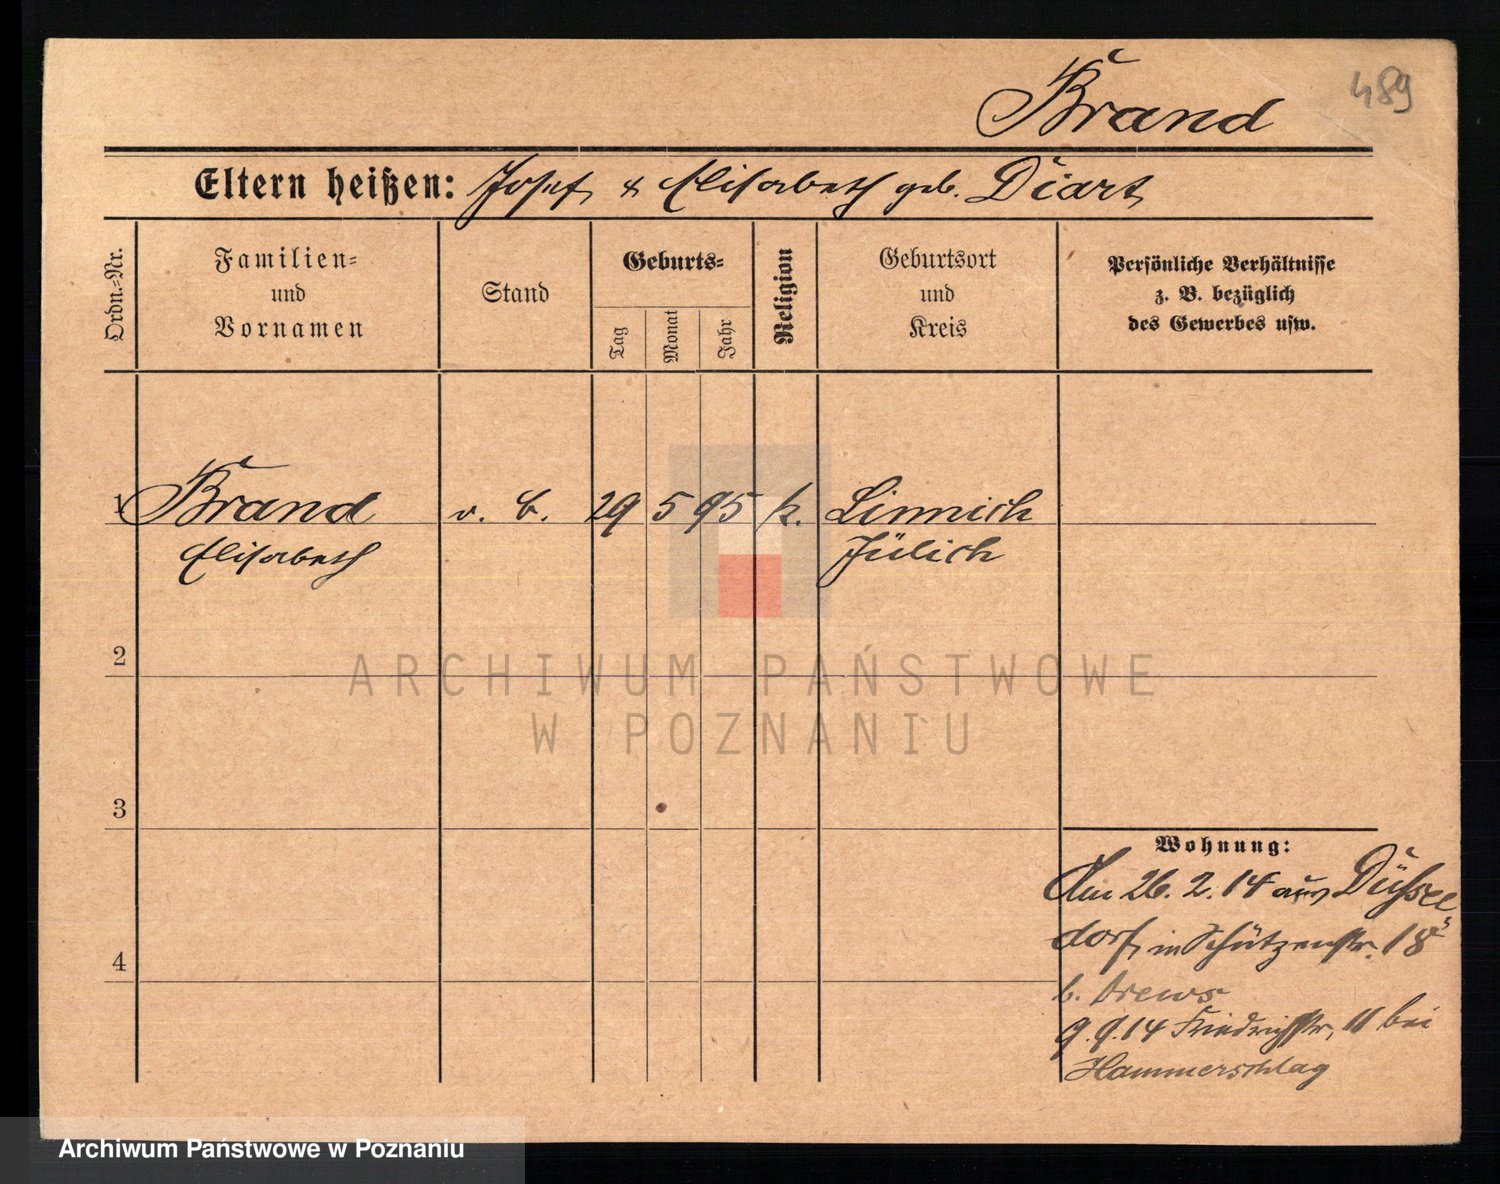 Brand
489
Eltern heißen: Josef & Elisabeth geb. Diart
Ordn.-Nr.
Familien-
und
Vornamen
Stand
Geburts-
Tag
Monat
Jahr
Religion
Geburtsort
und
Kreis
Persönliche Verhältnisse
z. B. bezüglich
des Gewerbes usw.
1 Brand v. b. 29 5 95 k. Linnich
Elisabeth Jülich
2
3
4
Wohnung:
Am 26. 2. 14 aus Düssel
dorf in Schützenstr. 18
b. Drews
9. 9. 14 Friedrichstr. 11 bei
Hammerschlag
ARCHIWUM PAŃSTWOWE
W POZNANIU
Archiwum Państwowe w Poznaniu